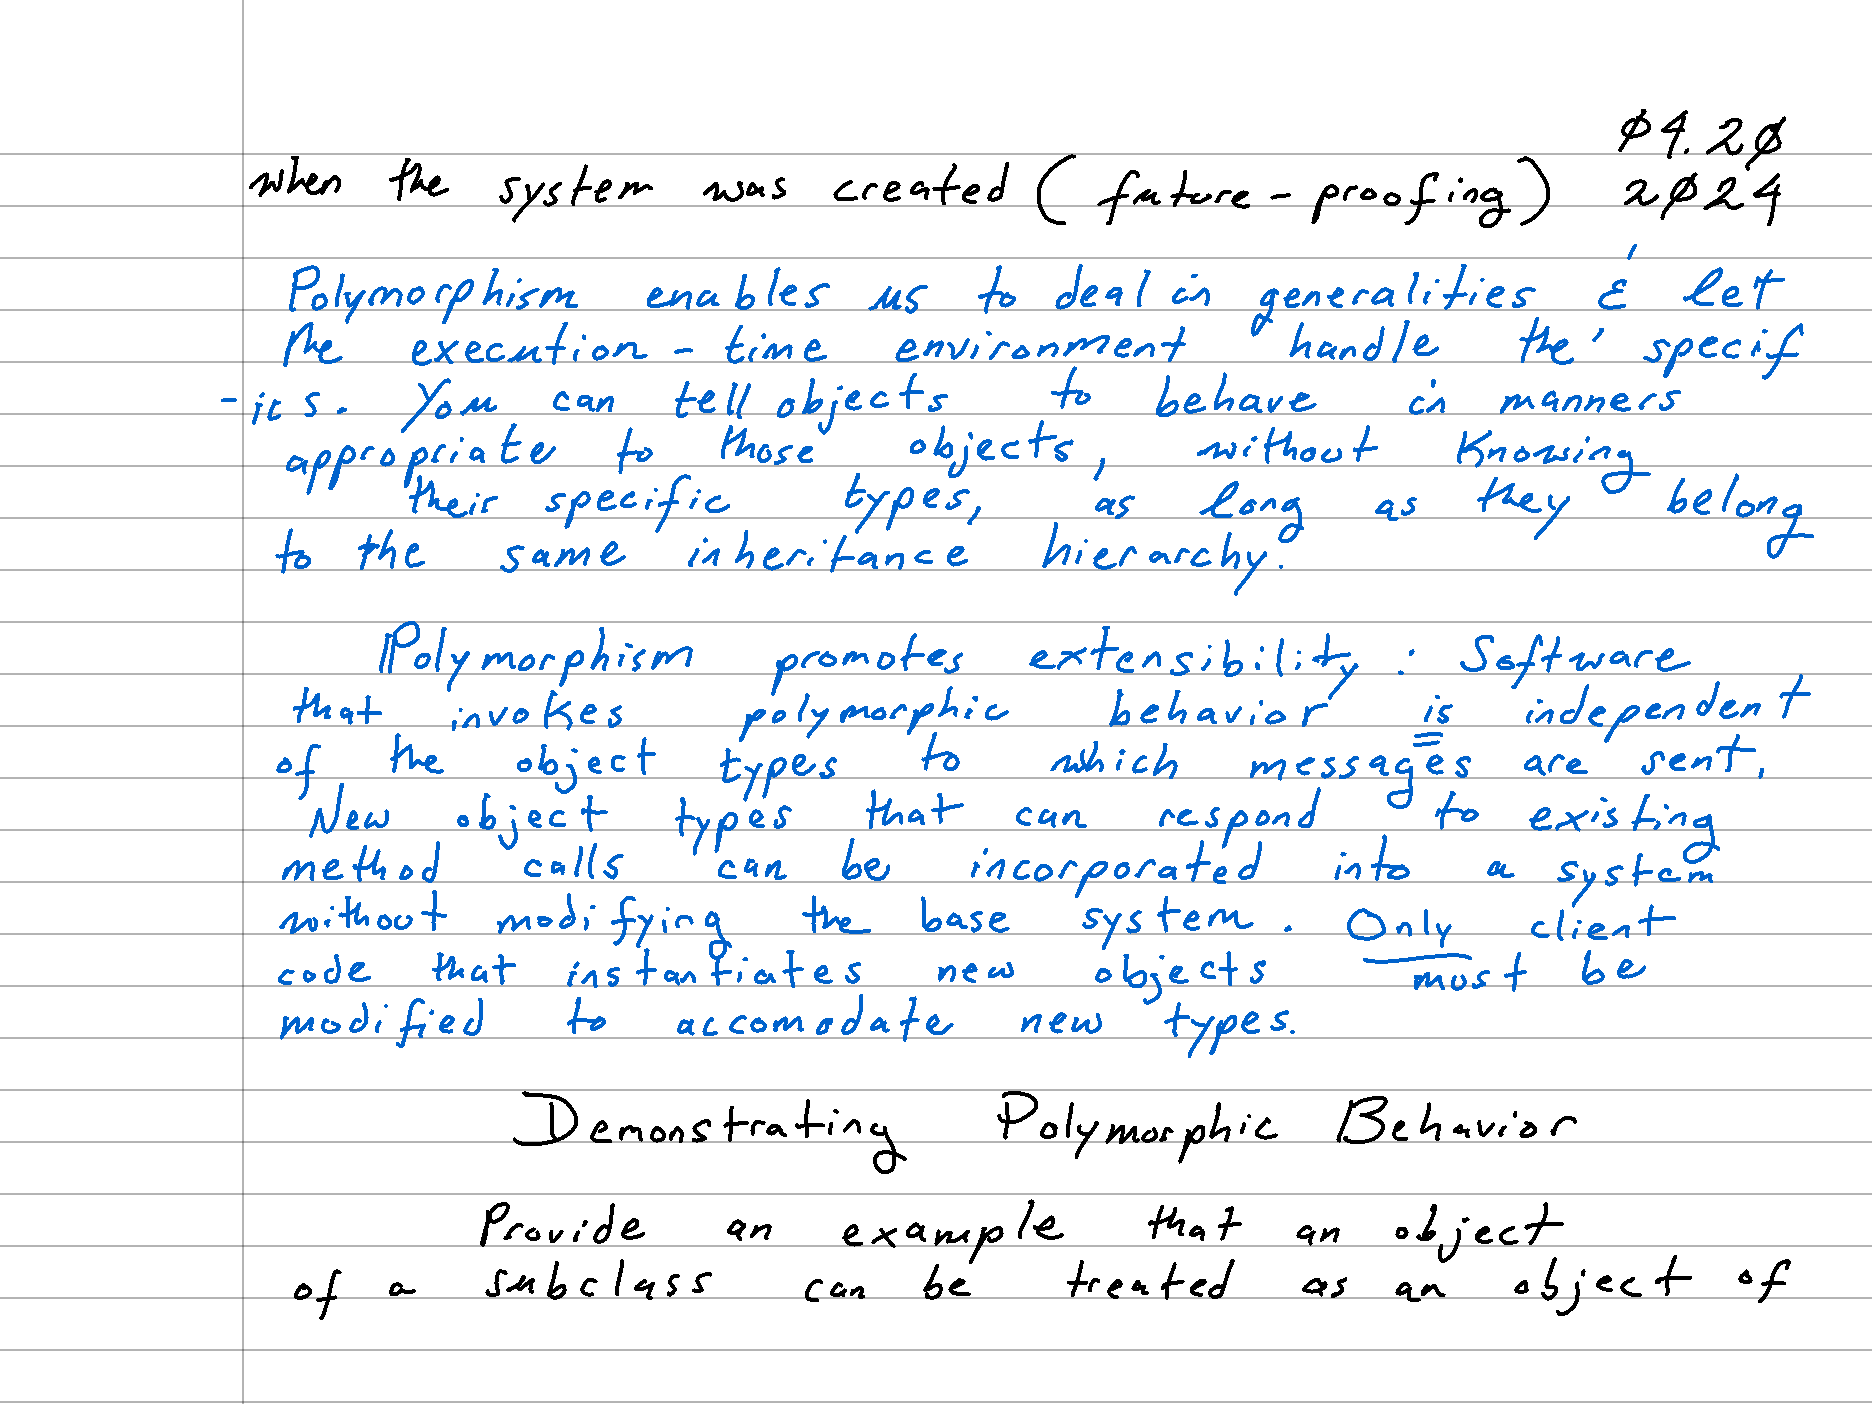 Ø4.2Ø
when the system was created (future-proofing) 2Ø24
Polymorphism enables us to deal in generalities & let
the execution-time environment handle the specif
-ics. You can tell objects to behave in manners
appropriate to those objects, without knowing
their specific types, as long as they belong
to the same inheritance hierarchy.
Polymorphism promotes extensibility: Software
that invokes polymorphic behavior is independent
of the object types to which messages are sent.
New object types that can respond to existing
method calls can be incorporated into a system
without modifying the base system. Only client
code that instantiates new objects must be
modified to accomodate new types.
Demonstrating Polymorphic Behavior
Provide an example that an object
of a subclass can be treated as an object of